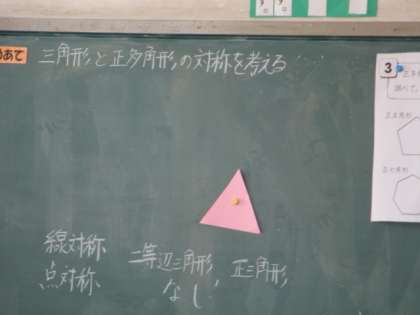 めあて
三角形と正多角形の対称を考える
3
調べて、
正五角形
線対称 二等辺三角形 正三角形
点対称 なし